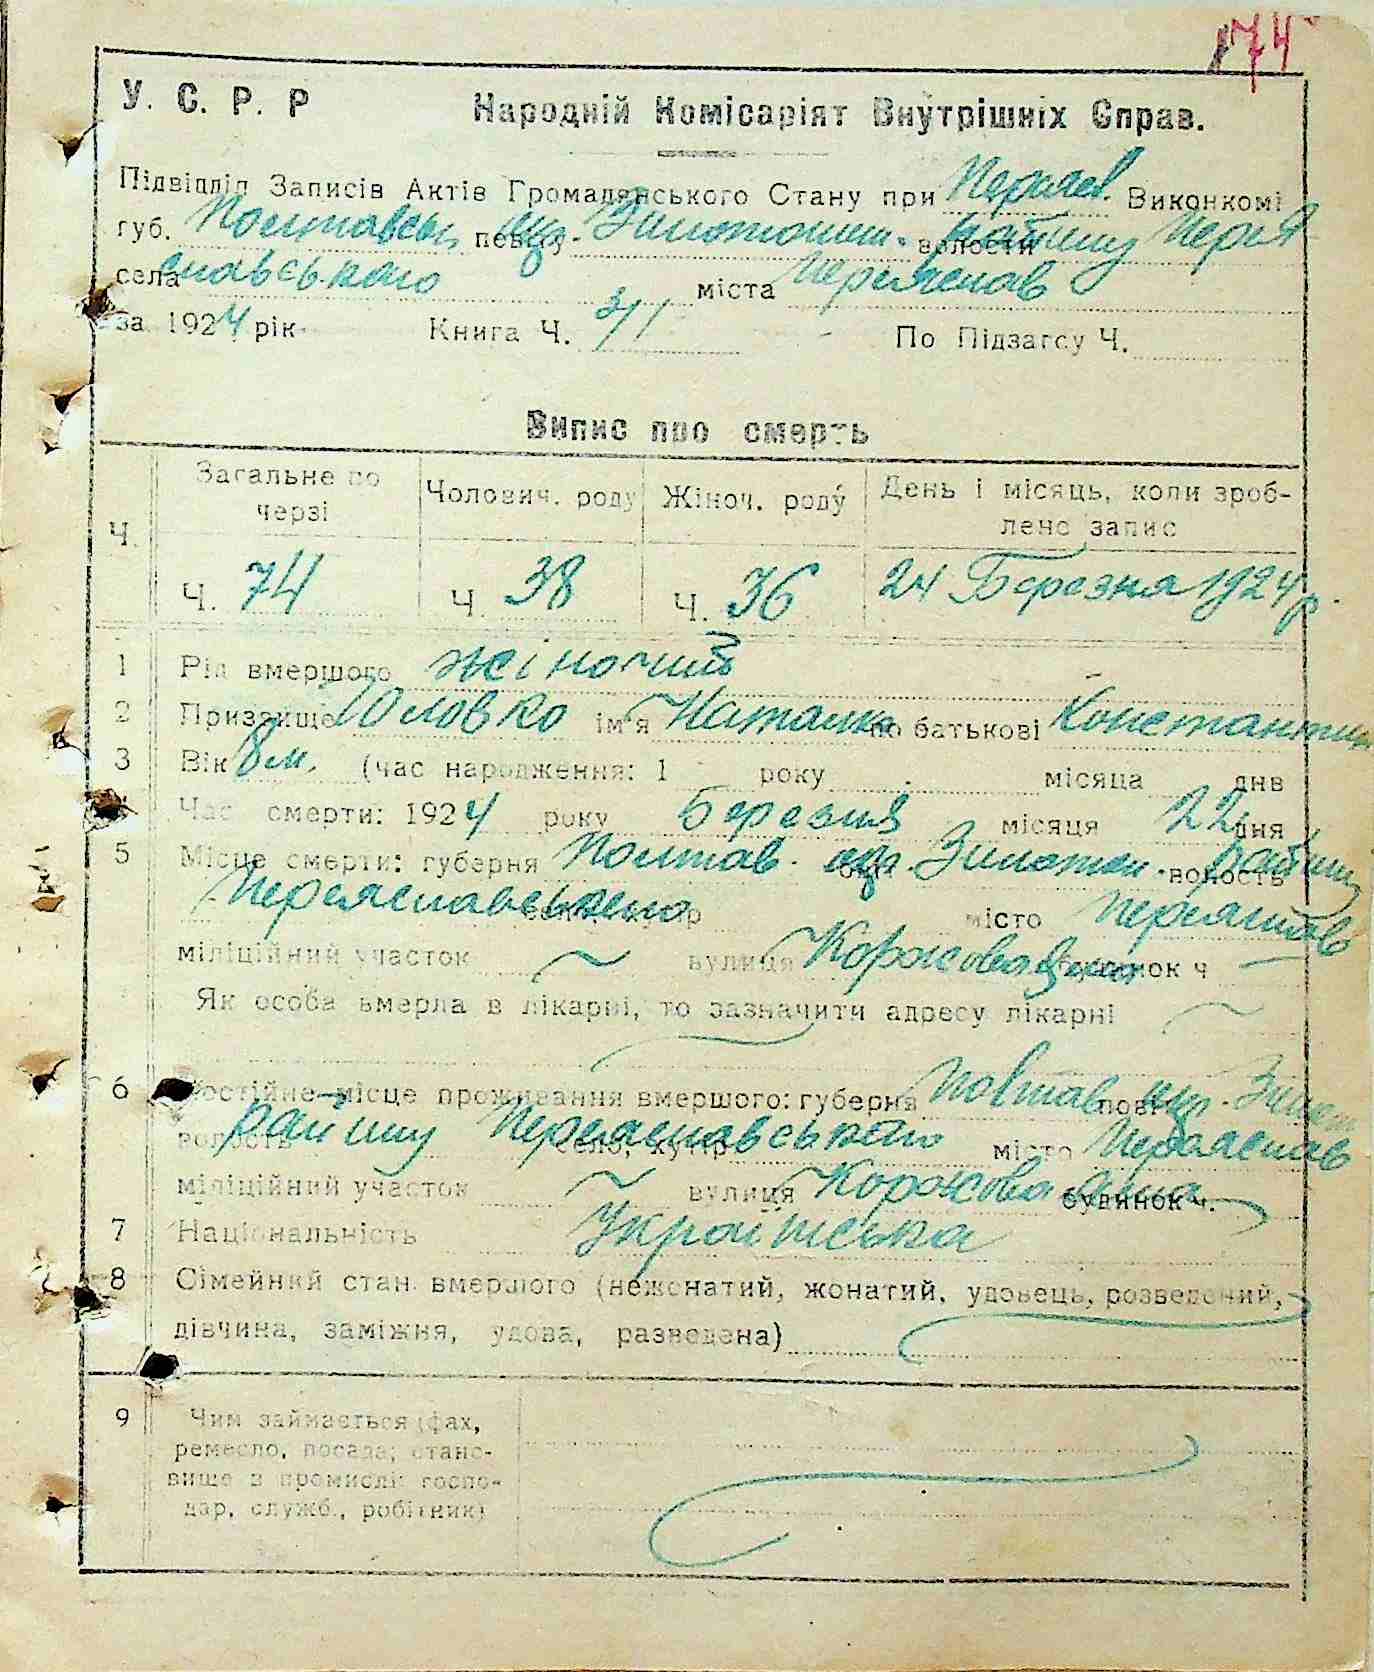 174
У. С. Р. Р Народній Комісаріят Внутрішніх Справ.
Підвідділ Записів Актів Громадянського Стану при Переяс. Виконкомі
губ. Полтавськ. повіту окр. Золотоніш. волости району Перея
села славського міста Переяслав
за 1924 рік Книга Ч. 3/1 По Підзагсу Ч.
Випис про смерть
Ч. Загальне по черзі Чолович. роду Жіноч. роду День і місяць, коли зроб-
лено запис
Ч. 74 Ч. 38 Ч. 36 24 Березня 1924 р.
1 Рід вмершого жіночий
2 Призвище Оловко ім'я Наталка по батькові Константин
3 Вік 8 м. (час народження: 1 року місяца днв
Час смерти: 1924 року Березня місяця 22 дня
5 Місце смерти: губерня Полтав. окр. Золотон. волость району
Переяславського місто Переяслав
міліційний участок вулиця будинок ч
Як особа вмерла в лікарні, то зазначити адресу лікарні
6 Постійне місце проживання вмершого: губерня Полтав повіт окр. Золот
волость району Переяславського село, хутір місто Переяслав
міліційний участок вулиця будинок ч.
7 Національність Українська
8 Сімейний стан вмершого (нежонатий, жонатий, удовець, розведений,
дівчина, заміжня, удова, разведена)
9 Чим займається (фах,
ремесло, посада; стано-
вище в промислі: госпо-
дар, служб., робітник)